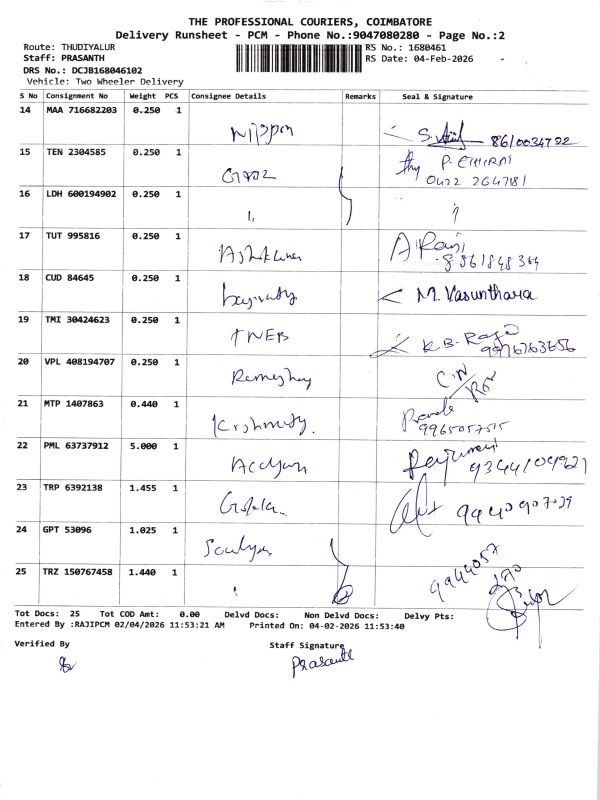 THE PROFESSIONAL COURIERS, COIMBATORE
Delivery Runsheet - PCM - Phone No.:9047080280 - Page No.:2
Route: THUDIYALUR RS No.: 1680461
Staff: PRASANTH RS Date: 04-Feb-2026
DRS No.: DCJB168046102
Vehicle: Two Wheeler Delivery
S No Consignment No Weight PCS Consignee Details Remarks Seal & Signature
14 MAA 716682203 0.250 1 Nippon 8610034722
15 TEN 2304585 0.250 1 P.
0422 2647181
16 LDH 600194902 0.250 1
17 TUT 995816 0.250 1
18 CUD 84645 0.250 1 M. Vasunthara
19 TMI 30424623 0.250 1 TNEB K.B. Raja
9976763656
20 VPL 408194707 0.250 1
21 MTP 1407863 0.440 1
22 PML 63737912 5.000 1
23 TRP 6392138 1.455 1
24 GPT 53096 1.025 1
25 TRZ 150767458 1.440 1
Tot Docs: 25 Tot COD Amt: 0.00 Delvd Docs: Non Delvd Docs: Delvy Pts:
Entered By :RAJIPCM 02/04/2026 11:53:21 AM Printed On: 04-02-2026 11:53:40
Verified By Staff Signature
Prasanth